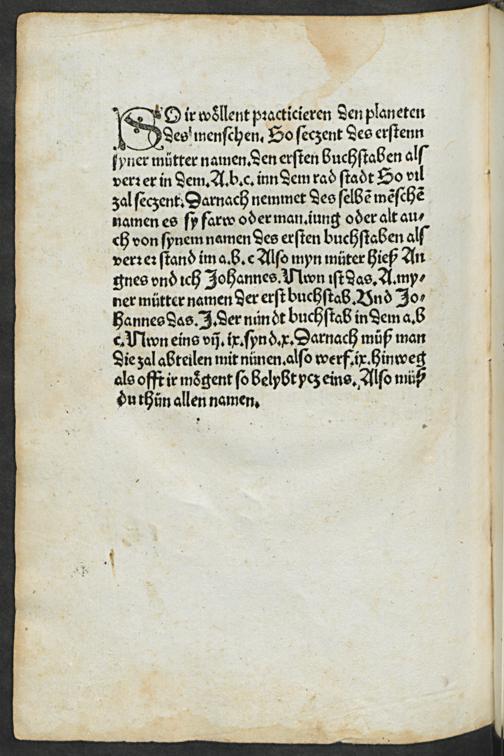 SO ir wöllent practicieren den planeten
des menschen. So seczent des erstenn
syner mütter namen. den ersten buchstaben als
verr er in dem. A.b.c. inn dem rad stadt So vil
zal seczent. Darnach nemmet des selbē mēschē
namen es sy farw oder man. iung oder alt au⸗
ch von synem namen des ersten buchstaben als
verr er stand im a.b.c Also myn müter hieß An
gnes vnd ich Johannes. Nwn ist das. A. my⸗
ner mütter namen der erst buchstab. Vnd Jo⸗
hannes das. J. der nündt buchstab in dem a.b
c. Nwn eins vn̄. ix. synd. x. Darnach müß man
die zal abteilen mit nünen. also werf. ix. hinweg
als offt ir mögent so belybt ycz eins. Also müß
du thün allen namen.